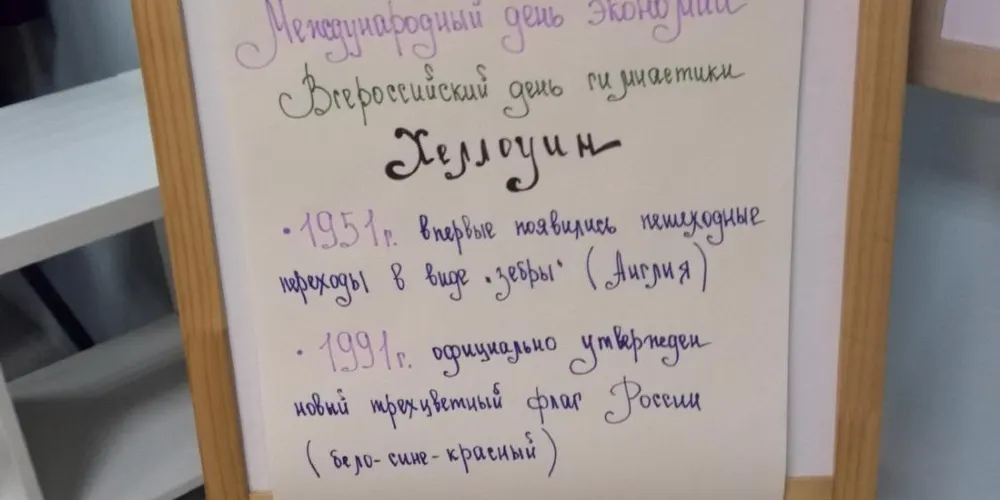 Международный день экономии
Всероссийский день гимнастики
Хеллоуин
• 1951 г. впервые появились пешеходные
переходы в виде "зебры" (Англия)
• 1991 г. официально утвержден
новый трехцветный флаг России
(бело-сине-красный)